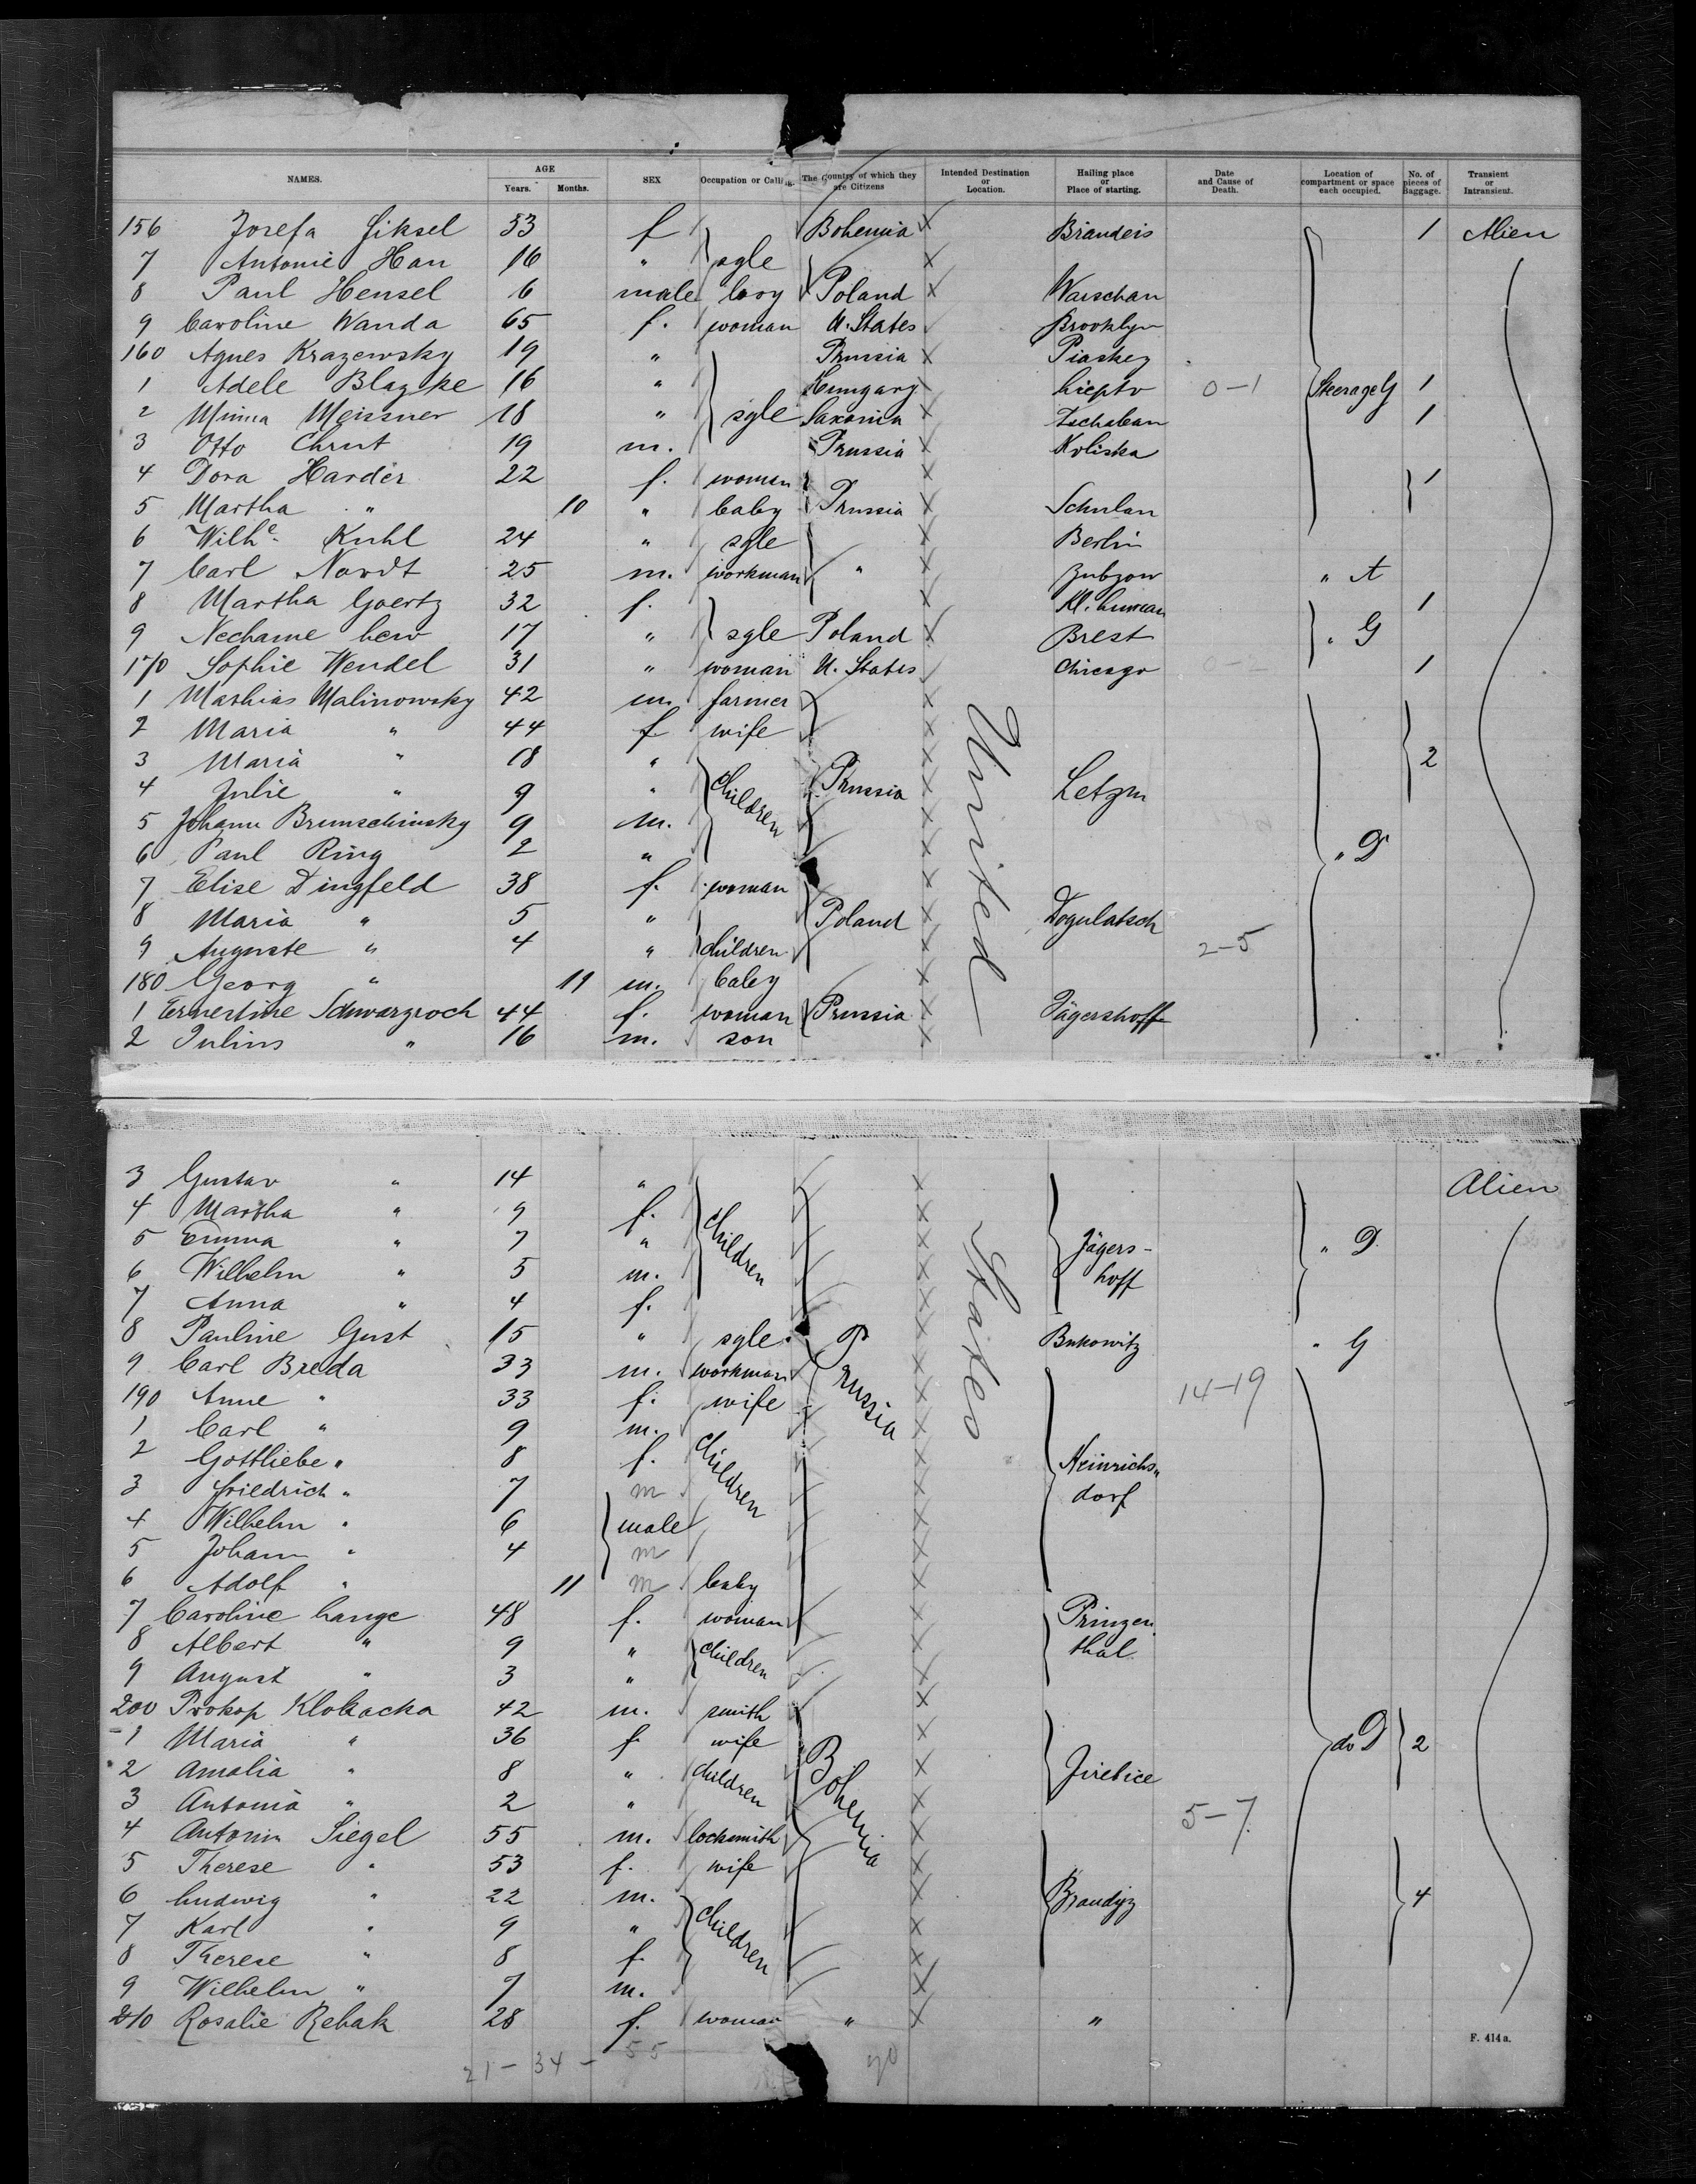 NAMES. AGE Years. Months. SEX Occupation or Calling. The Country of which they are Citizens Intended Destination or Location. Hailing place or Place of starting. Date and Cause of Death. Location of compartment or space each occupied. No. of pieces of Baggage. Transient or Intransient.
156 Josefa Fiksel 53 f Bohemia Brandeis 1 Alien
7 Antonie Han 16 " sgle
8 Paul Hensel 6 male boy Poland Warschau
9 Caroline Wanda 65 f. woman U. States Brooklyn
160 Agnes Krazewsky 19 " Prussia Piaskez
1 Adele Blazeke 16 " Hungary Liepto 0-1 Steerage G 1
2 Minna Meissner 18 " sgle Saxonia 1
3 Otto Christ 19 m. Prussia Koliska
4 Dora Harder 22 f. woman 1
5 Martha " 10 " baby Prussia Schulan
6 Wilhe. Kuhl 24 " sgle Berlin
7 Carl Nordt 25 m. workman " Zubzow " A
8 Martha Goertz 32 f. Kl. 1
9 Nechame Lew 17 " sgle Poland Brest " G
170 Sophie Wendel 31 " woman U. States Chicago 1
1 Mathias Malinowsky 42 m. farmer
2 Maria " 44 f wife
3 Maria " 18 " 2
4 Julie " 9 " children Prussia Letzin
5 Johann Brunschinsky 9 m.
6 Paul Ring 2 " " D
7 Elise Dingfeld 38 f. woman
8 Maria " 5 " Poland Dogulatsch
9 Auguste " 4 " children 2-5
180 Georg " 11 m. baby
1 Ernestine Schwarzroch 44 f. woman Prussia Jägershoff
2 Julius " 16 m. son
United
3 Gustav " 14 " Alien
4 Martha " 9 f.
5 Emma " 7 " children Jägers- " D
6 Wilhelm " 5 m. hoff
7 Anna " 4 f.
8 Pauline Gust 15 " sgle Prussia Bukowitz " G
9 Carl Breda 33 m. workman
190 Anne " 33 f. wife 14-19
1 Carl " 9 m.
2 Gottliebe " 8 f. children Heinrichs"
3 Friedrich " 7 m dorf
4 Wilhelm " 6 male
5 Johann " 4 m
6 Adolf " 11 m baby
7 Caroline Lange 48 f. woman Prinzen
8 Albert " 9 " children thal.
9 August " 3 "
200 Prokop Klobacka 42 m. smith
1 Maria " 36 f wife do D 2
2 Amalia " 8 " children Bohemia Jirebice
3 Antonia " 2 "
4 Antonin Siegel 55 m. locksmith 5-7.
5 Therese " 53 f. wife
6 Ludwig " 22 m. Brandyz 4
7 Karl " 9 " children
8 Therese " 8 f.
9 Wilhelm " 7 m.
210 Rosalie Rehak 28 f. woman " "
States
21 - 34 - 55 90
F. 414a.